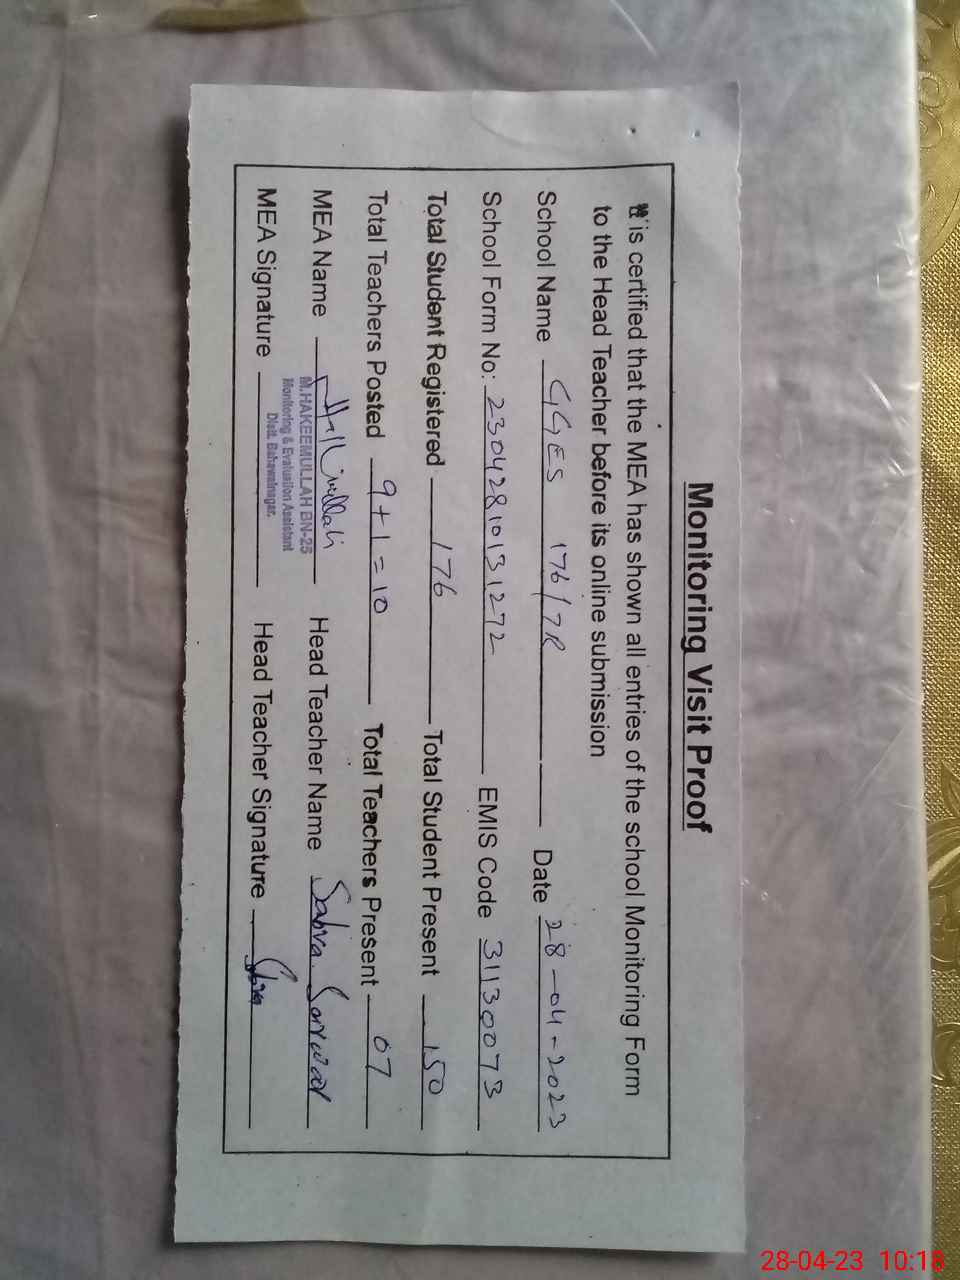 Monitoring Visit Proof
It is certified that the MEA has shown all entries of the school Monitoring Form
to the Head Teacher before its online submission
School Name GGES 176/7R Date 28-04-2023
School Form No: 23042810131272 EMIS Code 31130073
Total Student Registered 176 Total Student Present 150
Total Teachers Posted 9+1=10 Total Teachers Present 07
MEA Name Head Teacher Name Sabra Sarwar
M.HAKEEMULLAH BN-25
Monitoring & Evaluation Assistant
Distt. Bahawalnagar.
MEA Signature Head Teacher Signature
28-04-23 10:18